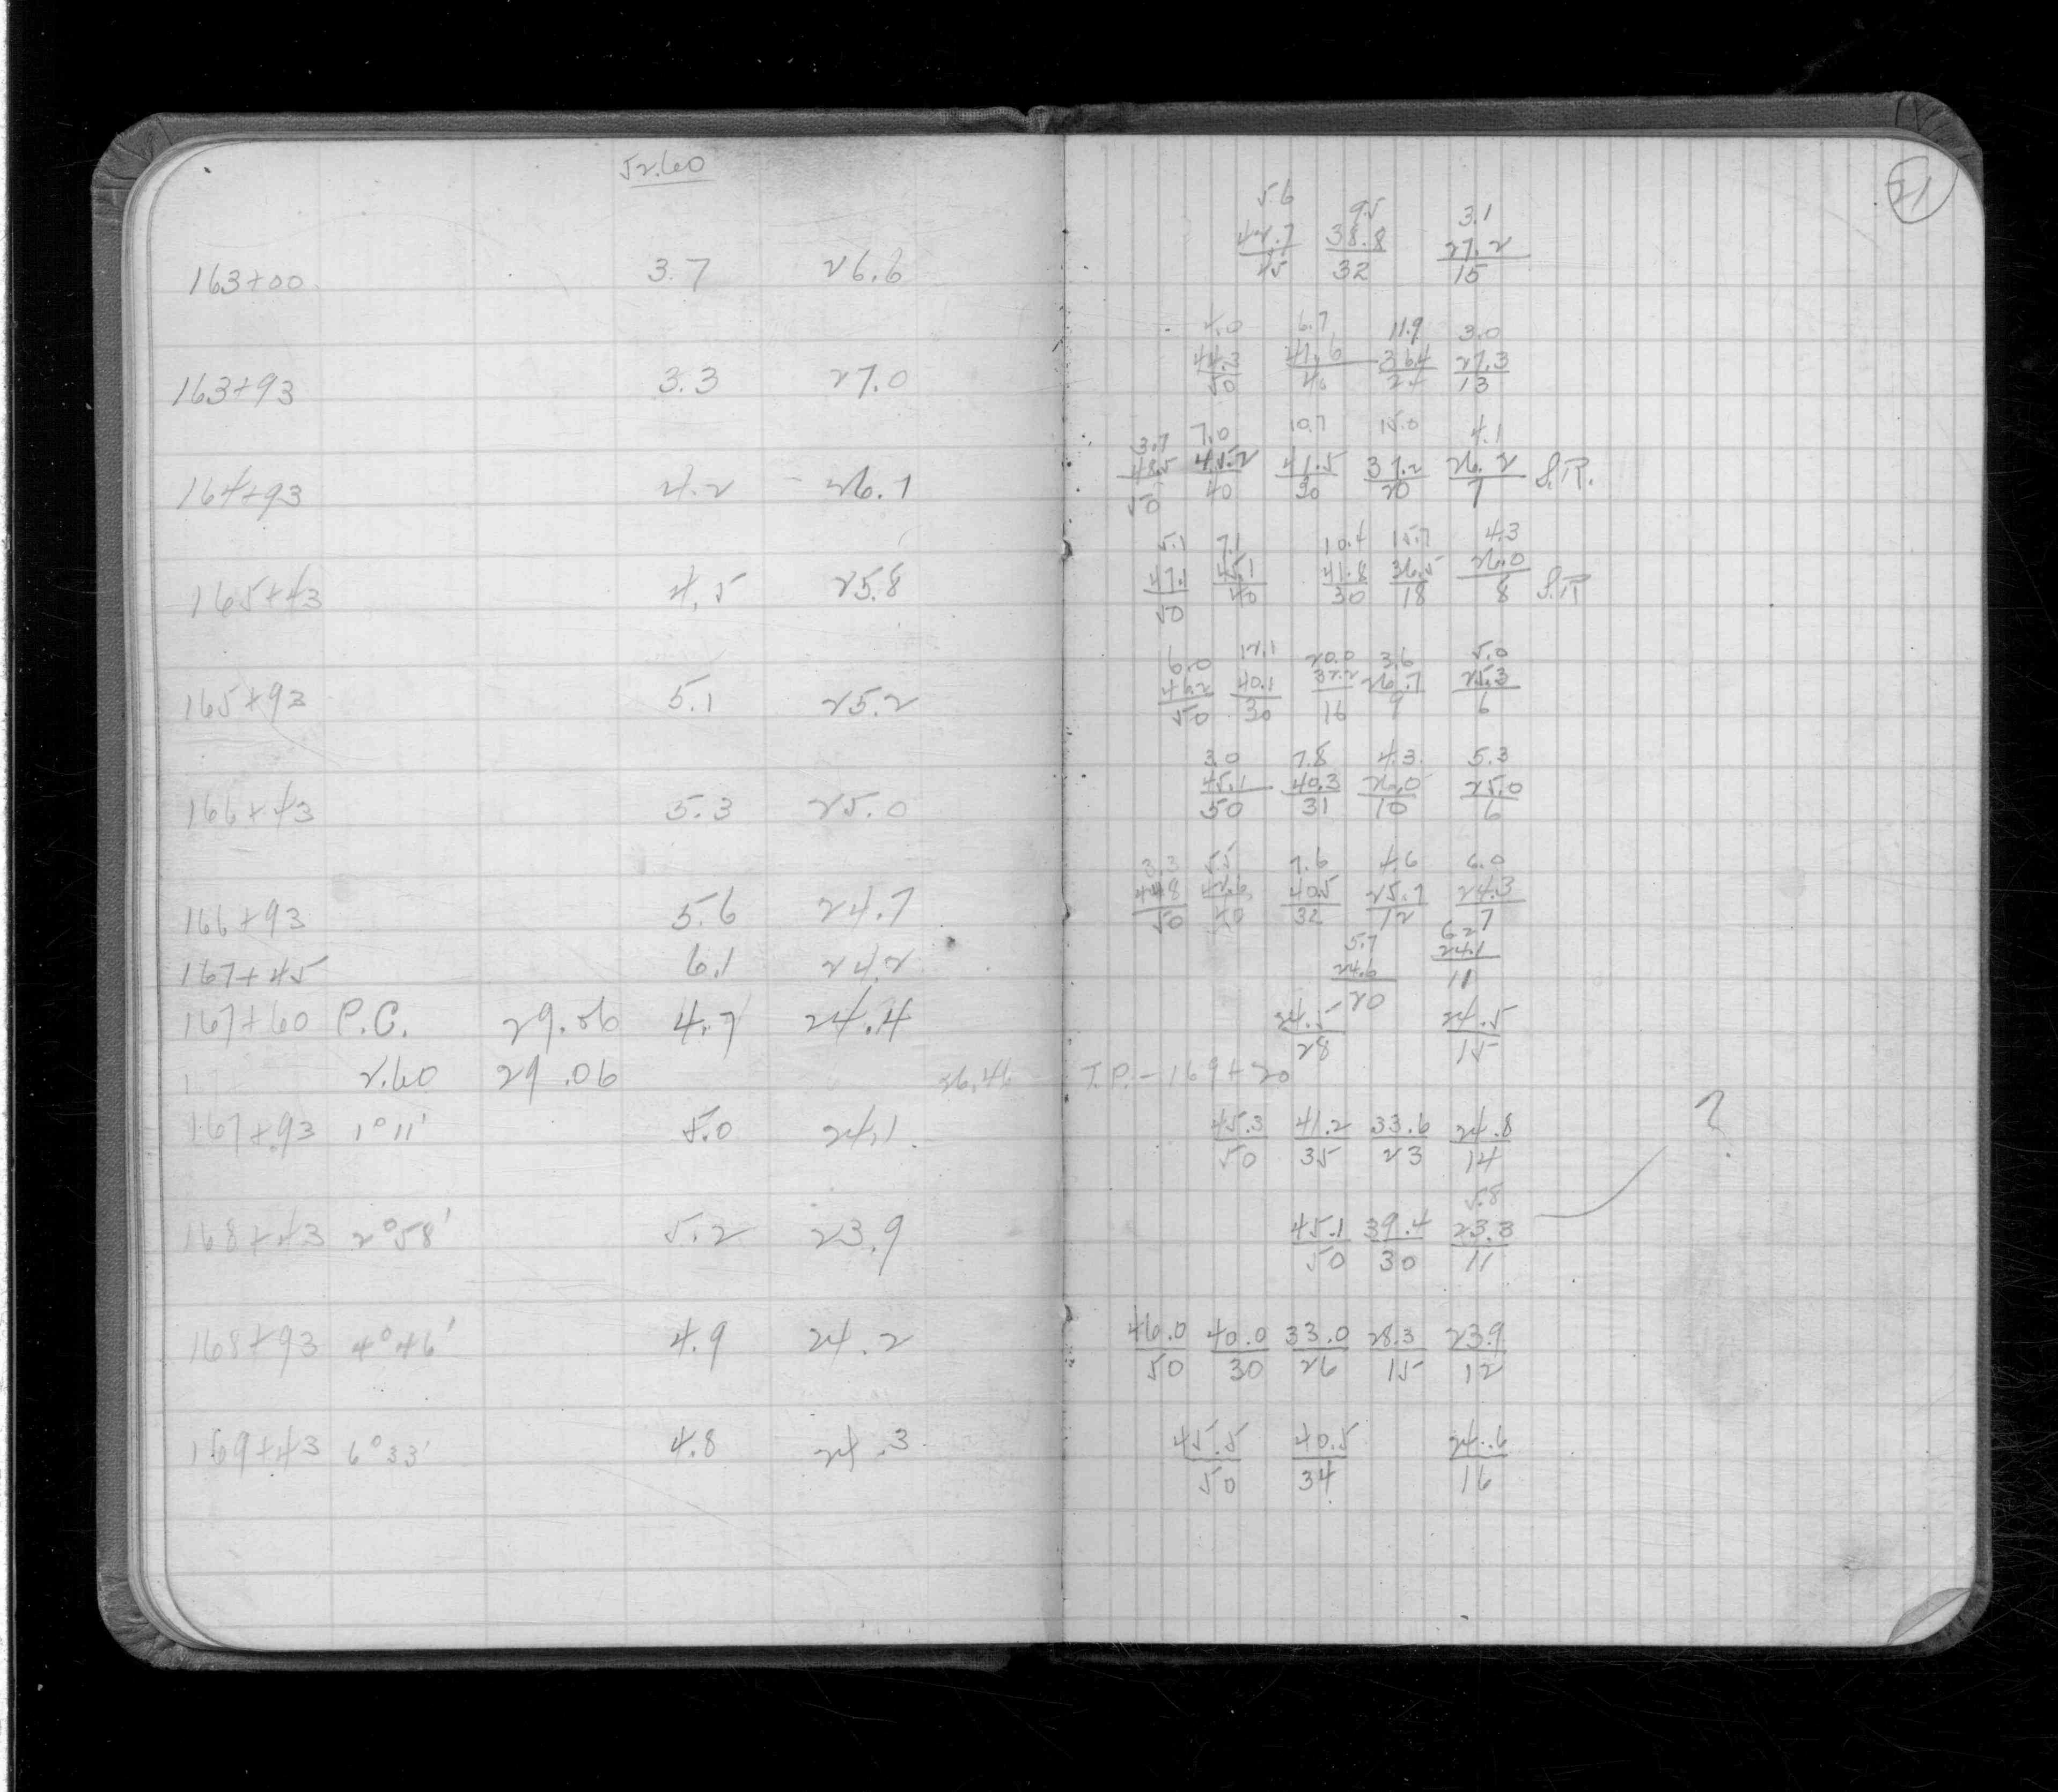 52.60
163+00 3.7 26.6
163+93 3.3 27.0
164+93 4.2 26.1
165+43 4.5 25.8
165+93 5.1 25.2
166+43 5.3 25.0
166+93 5.6 24.7
167+45 6.1 24.2
167+60 P.C. 29.06 4.7 24.4
2.60 29.06 26.46
167+93 1°11' 5.0 24.1
168+43 2°58' 5.2 23.9
168+93 4°46' 4.9 24.2
169+43 6°33' 4.8 24.3
21
5.6 9.5 3.1
42.7 38.8 27.2
32 15
6.7 11.9 3.0
44.3 41.6 36.4 27.3
50 13
3.7 7.0 10.7 15.0 4.1
48.5 45.2 41.5 37.2 26.2 S.R.
50 40 30 20 7
5.1 7.1 10.4 15.7 4.3
47.1 45.1 41.8 36.5 26.0
50 40 30 18 8 S.R
6.0 12.1 20.0 3.6 5.0
46.2 40.1 32.2 26.7 25.3
50 30 16 9 6
3.0 7.8 4.3 5.3
45.1 40.3 26.0 25.0
50 31 10 6
3.3 5.5 7.6 4.6 6.0
44.8 42.6 40.5 25.7 24.3
50 32 12 7
5.7 6.2
24.6 24.1
20 11
24.5 24.5
28 15
T.P. - 169+20
45.3 41.2 33.6 24.8
50 35 23 14
?
5.8
45.1 39.4 23.3
50 30 11
46.0 40.0 33.0 28.3 23.9
50 30 26 15 12
45.5 40.5 24.6
50 34 16